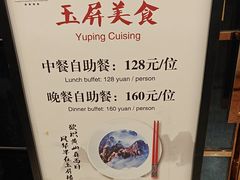 玉屏美食
Yuping Cuising
中餐自助餐：128元/位
Lunch buffet: 128 yuan / person
晚餐自助餐：160元/位
Dinner buffet: 160 yuan / person